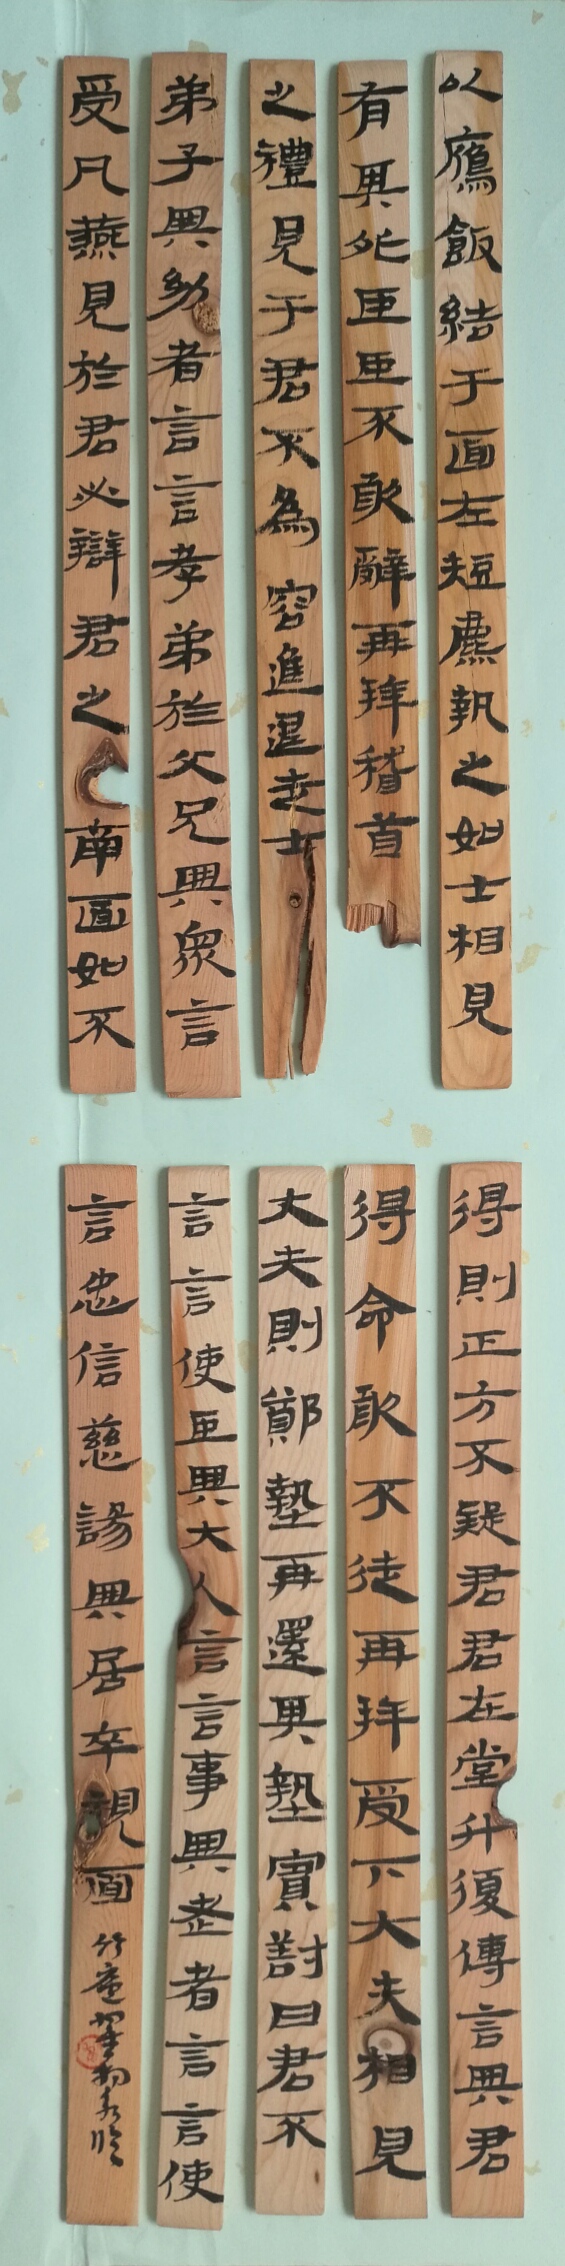 以鴈飯結于面左短麃執之如士相見
有其死臣臣不敢辭再拜稽首
之禮見于君不為容進退走士
弟子與幼者言言孝弟於父兄與眾言
受凡燕見於君必辯君之南面如不
得則正方不疑君君在堂升復傳言與君
得命敢不徒再拜受下大夫相見
大夫則鄭墊再還其墊賓對曰君不
言言使臣與大人言言事與老者言言使
言忠信慈諹與居卒視面